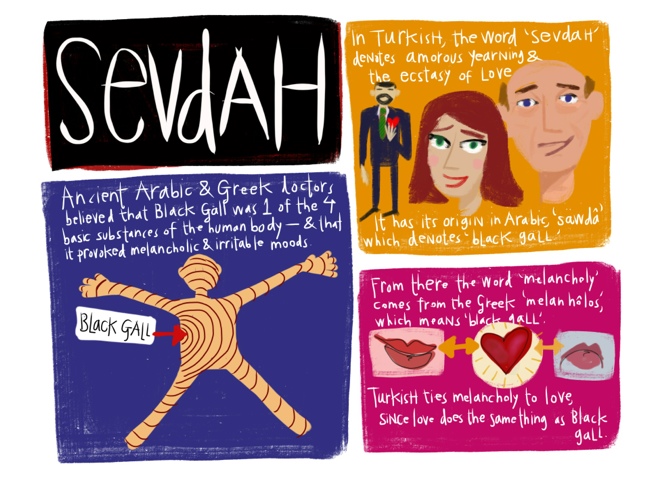 SevdAH
In Turkish, the word 'Sevdah'
denotes amorous yearning &
the ecstasy of Love
It has its origin in Arabic, 'sawdâ'
which denotes 'black gall'
Ancient Arabic & Greek doctors
believed that Black Gall was 1 of the 4
basic substances of the human body — & that
it provoked melancholic & irritable moods.
BlAck GAll
From there the word 'melancholy'
comes from the Greek 'melan hôlos,
which means 'black gall'.
Turkish ties melancholy to love,
since love does the same thing as Black
gall.